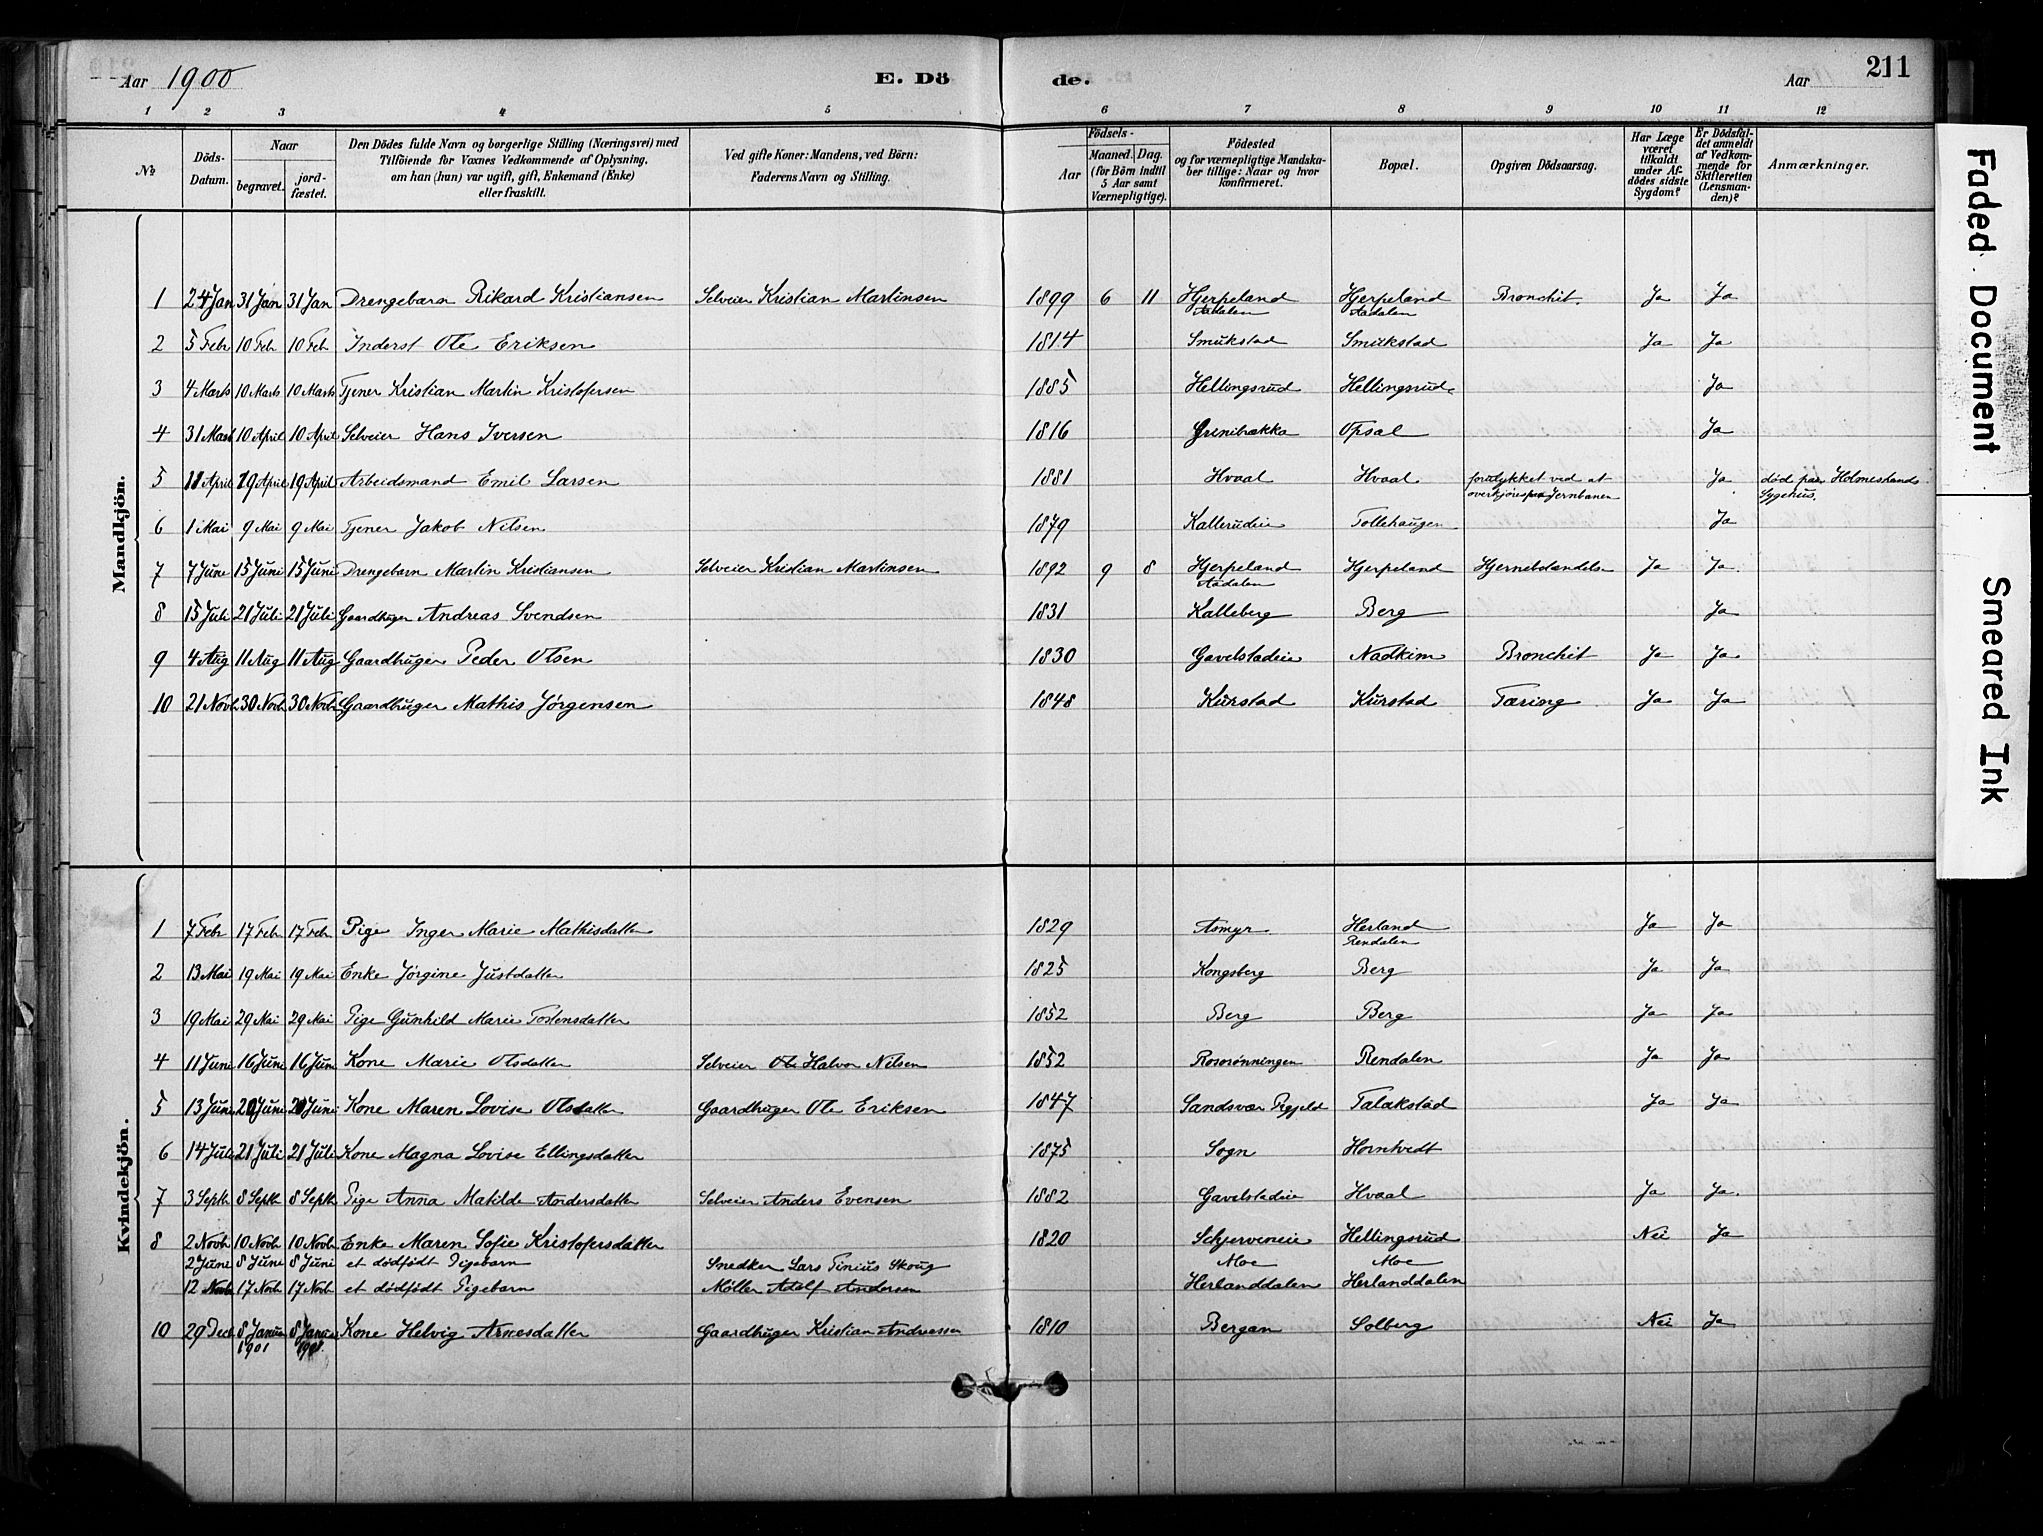 Aar 1900 E. Dö de. Aar 211
1 2 3 4 5 6 7 8 9 10 11 12
No
Döds-Datum.
Naar
begravet.
jord-fæstet.
Den Dödes fulde Navn og borgerlige Stilling (Næringsvei) med
Tilföiende for Voxnes Vedkommende af Oplysning,
om han (hun) var ugift, gift, Enkemand (Enke)
eller fraskilt.
Ved gifte Koner: Mandens, ved Börn:
Faderens Navn og Stilling.
Födsels-
Aar
Maaned. Dag.
(for Börn indtil
5 Aar samt
Værnepligtige).
Födested
og for værnepligtige Mandska-
ber tillige: Naar og hvor
konfirmeret.
Bopæl.
Opgiven Dödsaarsag.
Har Læge
været
tilkaldt
under Af-
dödes sidste
Sygdom?
Er Dödsfal-
det anmeldt
af Vedkom-
mende for
Skifteretten
(Lensman-
den)?
Anmærkninger.
Mandkjön.
1 24 Jan 31 Jan 31 Jan Drengebarn Rikard Kristiansen Selveier Kristian Martinsen 1899 6 11 Hjerpeland Hjerpeland Bronchit. Ja Ja
Aadalen Aadalen
2 5 Febr 10 Feb 10 Feb Inderst Ole Eriksen 1814 Smukstad Smukstad Ja Ja
3 4 Marts 10 Marts 10 Marts Tjener Kristian Martin Kristofersen 1885 Hellingsrud Hellingsrud Ja
4 31 Mart 10 April 10 April Selveier Hans Iversen 1816 Grinibakka Opsal Ja
5 11 April 19 April 19 April Arbeidsmand Emil Larsen 1881 Hvaal Hvaal forulykket ved at Ja död paa Holmestrands
overkjöres paa Jernbanen Sygehus.
6 1 Mai 9 Mai 9 Mai Tjener Jakob Nilsen 1879 Kallerudeie Tollehaugen Ja
7 7 June 15 Juni 15 Juni Drengebarn Martin Kristiansen Selveier Kristian Martinsen 1892 9 8 Hjerpeland Hjerpeland Hjernebetændelse Ja Ja
Aadalen
8 15 Juli 21 Juli 21 Juli Gaardbruger Andreas Svendsen 1831 Kalleberg Berg Ja
9 4 Aug 11 Aug 11 Aug Gaardbruger Peder Olsen 1830 Gavelstadeie Nadkim Bronchit Ja Ja
10 21 Novb 30 Novb 30 Novb Gaardbruger Mathis Jørgensen 1848 Kurstad Kurstad Tæring Ja Ja
Kvindekjön.
1 7 Febr 17 Feb 17 Feb Pige Inger Marie Mathisdatter 1829 Asmyr Herland Ja Ja
Rendalen
2 13 Mai 19 Mai 19 Mai Enke Jørgine Justdatter 1825 Kongsberg Berg Ja Ja
3 19 Mai 29 Mai 29 Mai Pige Gunhild Marie Tostensdatter 1852 Berg Berg Ja Ja
4 11 Juni 16 Juni 16 Juni Kone Marie Olsdatter Selveier Ole Halvor Nilsen 1852 Rosorønningen Rendalen Ja Ja
5 13 Juni 20 Juni 20 Juni Kone Maren Lovise Olsdatter Gaardbruger Ole Eriksen 1847 Sandsvær Talakstad Ja Ja
6 14 Juli 21 Juli 21 Juli Kone Magna Lovise Ellingsdatter 1875 Sogn Horntvedt
7 3 Septb 8 Septb 8 Septb Pige Anna Matilde Andersdatter Selveier Anders Evensen 1882 Gavelstadeie Hvaal Ja Ja.
8 2 Novb 10 Novb 10 Novb Enke Maren Sofie Kristofersdatter 1820 Schjerveneie Hellingsrud Nei Ja
2 Juni 8 Juni 8 Juni et dödfödt Pigebarn Snedker Lars Tinius Skoug Moe Moe
12 Novb 17 Novb 17 Novb et dödfödt Pigebarn Møller Adolf Andersen Herlanddalen Herlanddalen
10 29 Dec 8 Januar 8 Januar Kone Helvig Arnesdatter Gaardbruger Kristian Andreassen 1810 Bergan Solberg Nei Ja
1901 1901.
Faded Document
Smeared Ink